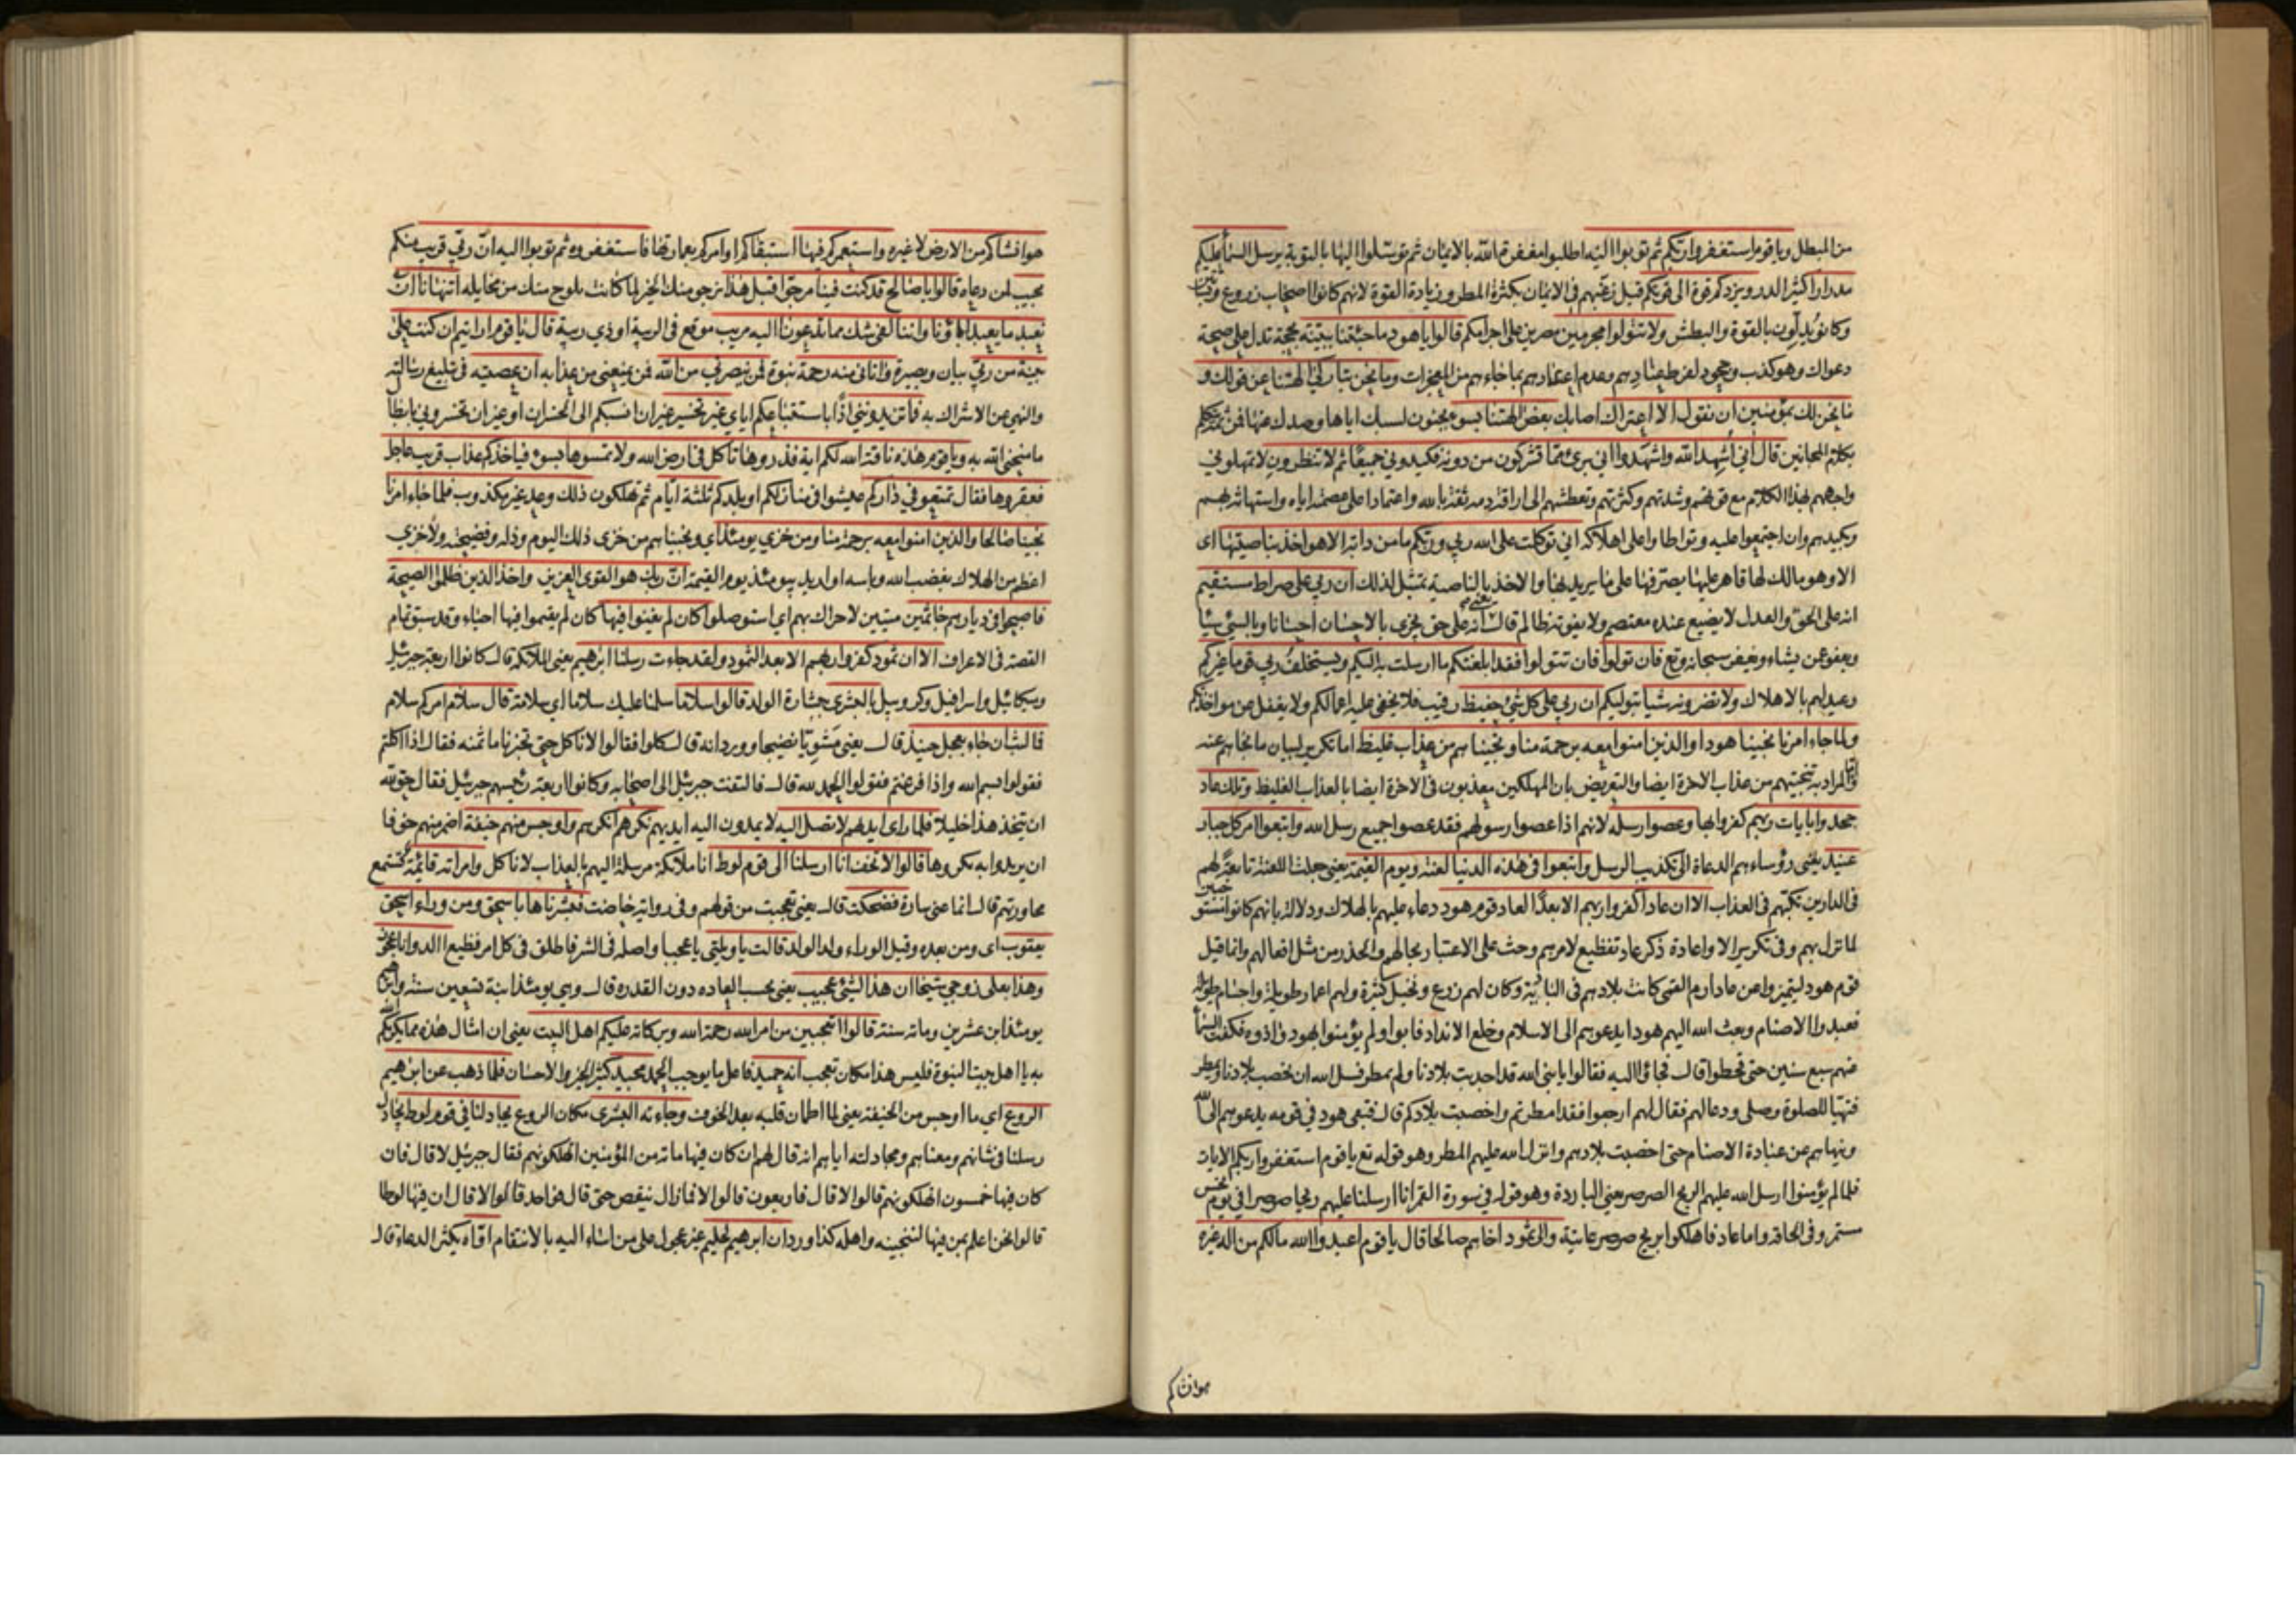 من المبطل ويا قوم استغفروا ربكم ثم توبوا اليه اطلبوا مغفرة الله بالايمان ثم توسلوا اليها بالتوبة يرسل السماء عليكم
مدرارا كثير الدر ويزدكم قوة الى قوتكم قيل رغبهم في الايمان بكثرة المطر وزيادة القوة لانهم كانوا اصحاب زروع
وكانوا يدلون بالقوة والبطش ولا تتولوا مجرمين مصرين على اجرامكم قالوا يا هود ما جئتنا ببينة بحجة تدل على صحة
دعواك وهو كذب وجحود لفرط عنادهم وعدم اعتدادهم بما جاءهم من المعجزات وما نحن بتاركي الهتنا عن قولك و
ما نحن لك بمؤمنين ان نقول الا اعتراك اصابك بعض الهتنا بسوء بجنون لسبك اياها وصدك عنها فمن ثم تتكلم
بكلام المجانين قال اني اشهد الله واشهدوا اني بريء مما تشركون من دونه فكيدوني جميعا ثم لا تنظرون لا تمهلوني
واجههم بهذا الكلام مع قوتهم وشدتهم وكثرتهم وتعطشهم الى اراقة دمه ثقة بالله واعتمادا على عصمته اياه واستهانة بهم
وبكيدهم وان اجتمعوا عليه وتواطأوا على اهلاكه اني توكلت على الله ربي وربكم ما من دابة الا هو اخذ بناصيتها اى
الا وهو مالك لها قاهر عليها يصرفها على ما يريد بها والاخذ بالناصية تمثيل لذلك ان ربي على صراط مستقيم
انه على الحق والعدل لا يضيع عنده معتصم ولا يفوته ظالم قال يعني انه على حق يجزي بالاحسان احسانا وبالسيئ سيئا
ويعفو عن يشاء ويغفر سبحانه وتع فان تولوا فان تتولوا فقد ابلغتكم ما ارسلت به اليكم ويستخلف ربي قوما غيركم
وعيد لهم بالاهلاك ولا تضرونه شيئا بتوليكم ان ربي على كل شئ حفيظ رقيب فلا يخفى عليه اعمالكم ولا يغفل عن مؤاخذتكم
ولما جاء امرنا نجينا هودا والذين امنوا معه برحمة منا ونجيناهم من عذاب غليظ اما تكرير لبيان ما نجاهم عنه
واما المراد به تنجيتهم من عذاب الاخرة ايضا والتعريض بان المهلكين معذبون فى الاخرة ايضا بالعذاب الغليظ وتلك عاد
جحدوا بايات ربهم كفروا بها وعصوا رسله لانهم اذا عصوا رسولهم فقد عصوا جميع رسل الله واتبعوا امر كل جبار
عنيد يعنى رؤساءهم الدعاة الى تكذيب الرسل واتبعوا فى هذه الدنيا لعنة ويوم القيمة يعني جعلت اللعنة تابعة لهم
فى الدارين تكبهم فى العذاب الا ان عادا كفروا ربهم الا بعدا لعاد قوم هود دعاء عليهم بالهلاك ودلالة بانهم كانوا مستوجبين
لما نزل بهم وفى تكرير الا واعادة ذكر عاد تفظيع لامرهم وحث على الاعتبار بحالهم والحذر من مثل افعالهم وانما قيل
قوم هود ليتميزوا عن عاد ارم القمى كانت بلادهم فى البادية وكان لهم زرع ونخيل كثيرة ولهم اعمار طويلة واجسام طويلة
فعبدوا الاصنام وبعث الله اليهم هودا يدعوهم الى الاسلام وخلع الانداد فابوا ولم يؤمنوا بهود واذوه فكفت السماء
عنهم سبع سنين حتى قحطوا قال فجاؤا اليه فقالوا يا نبى الله قد اجدبت بلادنا ولم تمطر فسل الله ان يخصب بلادنا وتمطر
فتهيا للصلوة وصلى ودعا لهم فقال لهم ارجعوا فقد امطرتم واخصبت بلادكم قال فبقى هود في قومه يدعوهم الى الله
وينهاهم عن عبادة الاصنام حتى اخصبت بلادهم وانزل الله عليهم المطر وهو قوله تع يا قوم استغفروا ربكم الايات
فلما لم يؤمنوا ارسل الله عليهم الريح الصرصر يعنى الباردة وهو قوله في سورة القمر انا ارسلنا عليهم ريحا صرصرا في يوم نحس
مستمر وفى الحاقة واما عاد فاهلكوا بريح صرصر عاتية والى ثمود اخاهم صالحا قال يا قوم اعبدوا الله مالكم من اله غيره
هو انشاكم
هو انشاكم من الارض لا غيره واستعمركم فيها استبقاكم او امركم بعمارتها فاستغفروه ثم توبوا اليه ان ربي قريب منكم
مجيب لمن دعاه قالوا يا صالح قد كنت فينا مرجوا قبل هذا نرجو منك الخير لما كانت تلوح منك من مخايله اتنهانا ان
نعبد ما يعبد اباؤنا واننا لفي شك مما تدعونا اليه مريب موقع فى الريبة او ذي ريبة قال يا قوم ارايتم ان كنت على
بينة من ربي بيان وبصيرة واتاني منه رحمة نبوة فمن ينصرني من الله فمن يمنعني من عذابه ان عصيته فى تبليغ رسالته
والنهي عن الاشراك به فما تزيدونني اذا باستتباعكم اياي غير تخسير غير ان انسبكم الى الخسران او غير ان تخسروني بابطال
ما منحني الله به ويا قوم هذه ناقة الله لكم اية فذروها تاكل في ارض الله ولا تمسوها بسوء فياخذكم عذاب قريب عاجل
فعقروها فقال تمتعوا في داركم عيشوا فى منازلكم او بلدكم ثلثة ايام ثم تهلكون ذلك وعد غير مكذوب فلما جاء امرنا
نجينا صالحا والذين امنوا معه برحمة منا ومن خزي يومئذ اي ونجيناهم من خزى ذلك اليوم وذله وفضيحته ولا خزي
اعظم من الهلاك بغضب الله وباسه او اريد بيومئذ يوم القيمة ان ربك هو القوى العزيز واخذ الذين ظلموا الصيحة
فاصبحوا فى ديارهم جاثمين ميتين لا حراك بهم اي استوصلوا كان لم يغنوا فيها كان لم يقيموا فيها احياء وقد سبق تمام
القصة فى الاعراف الا ان ثمود كفروا ربهم الا بعدا لثمود ولقد جاءت رسلنا ابرهيم يعنى الملائكة قال كانوا اربعة جبرئيل
وميكائيل واسرافيل وكروبيل بالبشرى ببشارة الولد قالوا سلاما سلمنا عليك سلاما اي سلامة قال سلام امركم سلام
فما لبث ان جاء بعجل حنيذ قال يعنى مشويا نضيجا وورد انه قال كلوا فقالوا لا ناكل حتى تخبرنا ما ثمنه فقال اذا اكلتم
فقولوا بسم الله واذا فرغتم فقولوا الحمد لله قال فالتفت جبرئيل الى اصحابه وكانوا اربعة رئيسهم جبرئيل فقال حق لله
ان يتخذ هذا خليلا فلما راى ايديهم لا تصل اليه لا يمدون اليه ايديهم نكرهم انكرهم واوجس منهم خيفة اضمر منهم خوفا
ان يريدوا به مكروها قالوا لا تخف انا ارسلنا الى قوم لوط انا ملائكة مرسلة اليهم بالعذاب لا ناكل وامراته قائمة تستمع
محاورتهم قال انما عنى سارة فضحكت قال يعنى تعجبت من قولهم وفى رواية حاضت فبشرناها باسحق ومن وراء اسحق
يعقوب اى ومن بعده وقيل الوراء ولد الولد قالت يا ويلتى يا عجبا واصله فى الشر فاطلق فى كل امر فظيع االد وانا عجوز
وهذا بعلى زوجي شيخا ان هذا لشئ عجيب يعنى بحسب العاده دون القدره قال وهى يومئذ ابنة تسعين سنة وابرهيم
يومئذ ابن عشرين ومائة سنة قالوا اتعجبين من امر الله رحمة الله وبركاته عليكم اهل البيت يعنى ان امثال هذه مما يكرمكم الله
به يا اهل بيت النبوة فليس هذا مكان تعجب انه حميد فاعل ما يوجب الحمد مجيد كثير الخير والاحسان فلما ذهب عن ابرهيم
الروع اي ما اوجس من الخيفة يعنى لما اطمان قلبه بعد الخوف وجاءته البشرى مكان الروع يجادلنا في قوم لوط يجادل
رسلنا فى شانهم ومعناهم ومجادلته اياهم انه قال لهم ان كان فيها مائة من المؤمنين اتهلكونهم فقال جبرئيل لا قال فان
كان فيها خمسون اتهلكونهم قالوا لا قال فاربعون قالوا لا فما زال ينقص حتى قال فواحد قالوا لا قال ان فيها لوطا
قالوا نحن اعلم بمن فيها لننجينه واهله كذا ورد ان ابرهيم لحليم غير عجول على من اساء اليه بالانتقام اواه يكثر الدعاء قال